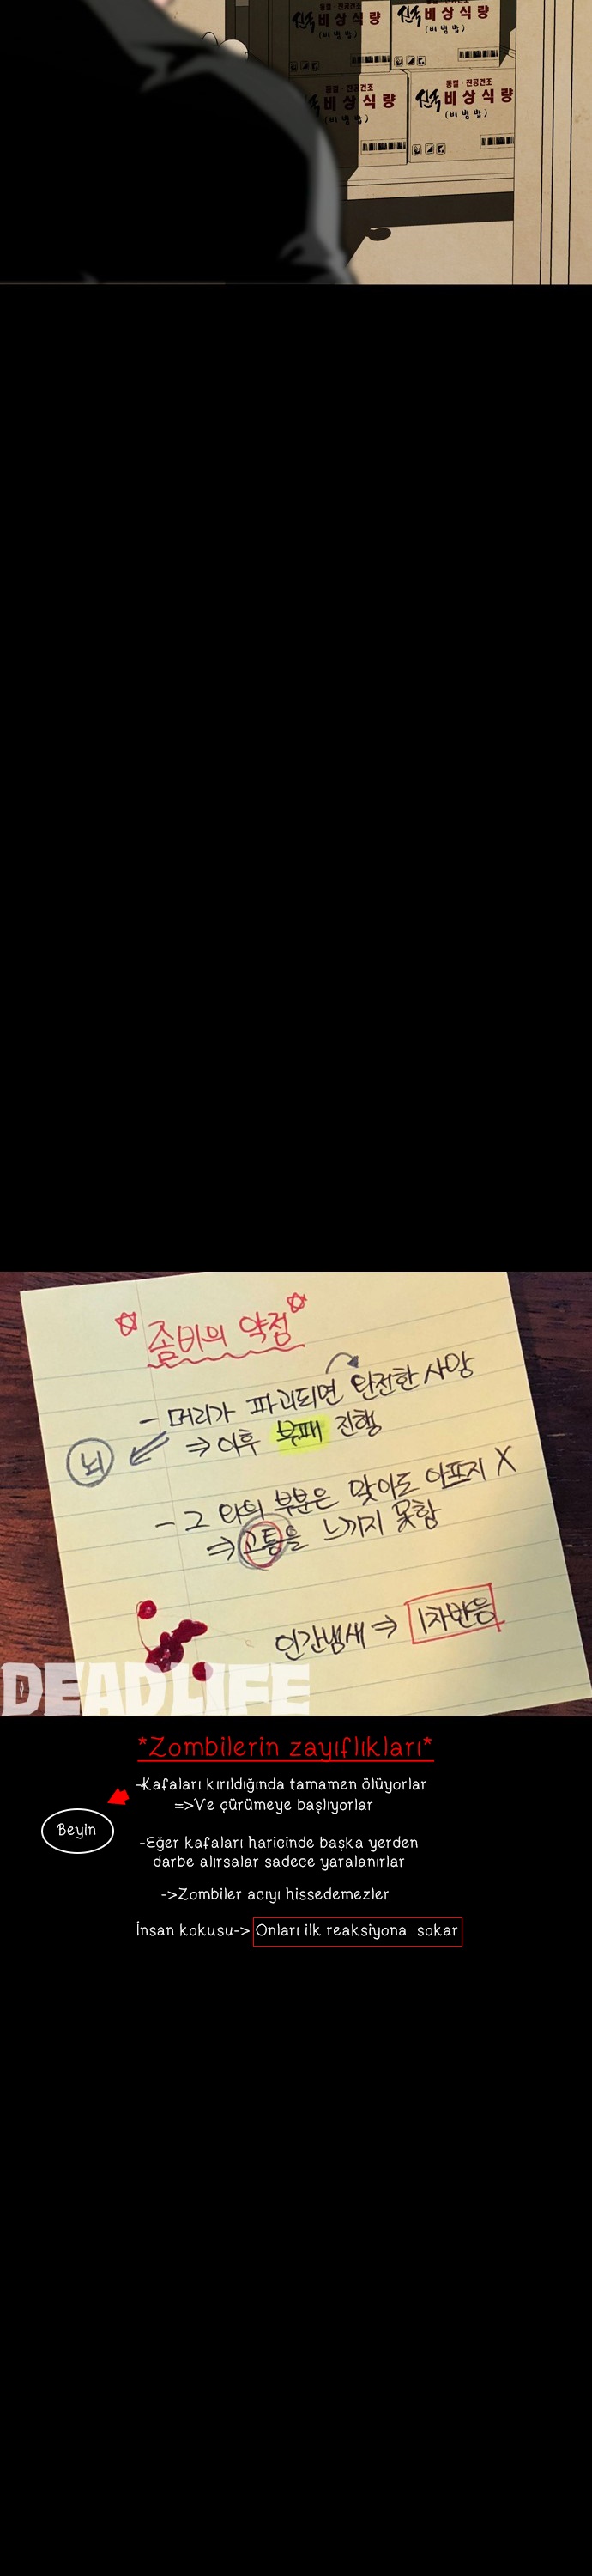 동결·진공건조
비상식량
(비빔밥)
비상식량
(비빔밥)
동결·진공건조
비상식량
(비빔밥)
동결·진공건조
비상식량
(비빔밥)
좀비의 약점
- 머리가 파괴되면 완전한 사망
⇒ 이후 부패 진행
뇌
- 그 외의 부분은 맞이도 아프지 X
⇒ 고통을 느끼지 못함
인간냄새 ⇒ 1차반응
DEADLIFE
*Zombilerin zayıflıkları*
-Kafaları kırıldığında tamamen ölüyorlar
=>Ve çürümeye başlıyorlar
Beyin
-Eğer kafaları haricinde başka yerden
darbe alırsalar sadece yaralanırlar
->Zombiler acıyı hissedemezler
İnsan kokusu-> Onları ilk reaksiyona sokar